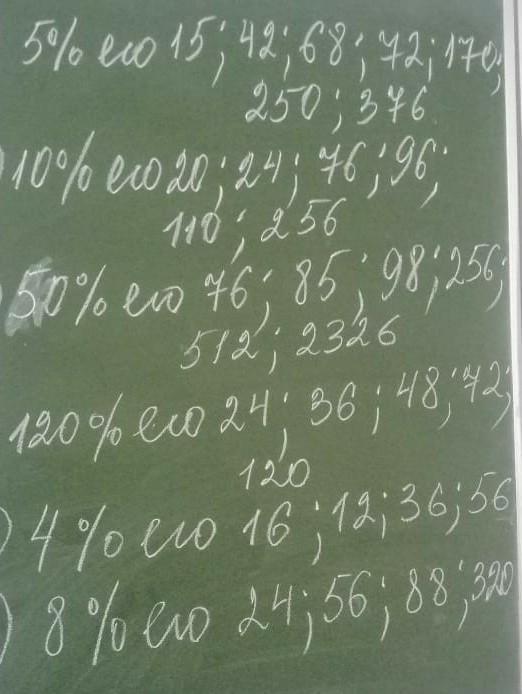 5% его 15; 42; 68; 72; 170;
250; 376
) 10% его 20; 24; 76; 96;
110; 256
) 50% его 76; 85; 98; 256;
512; 2326
120% его 24; 36; 48; 72;
120
) 4% его 16; 12; 36; 56
) 8% его 24; 56; 88; 320